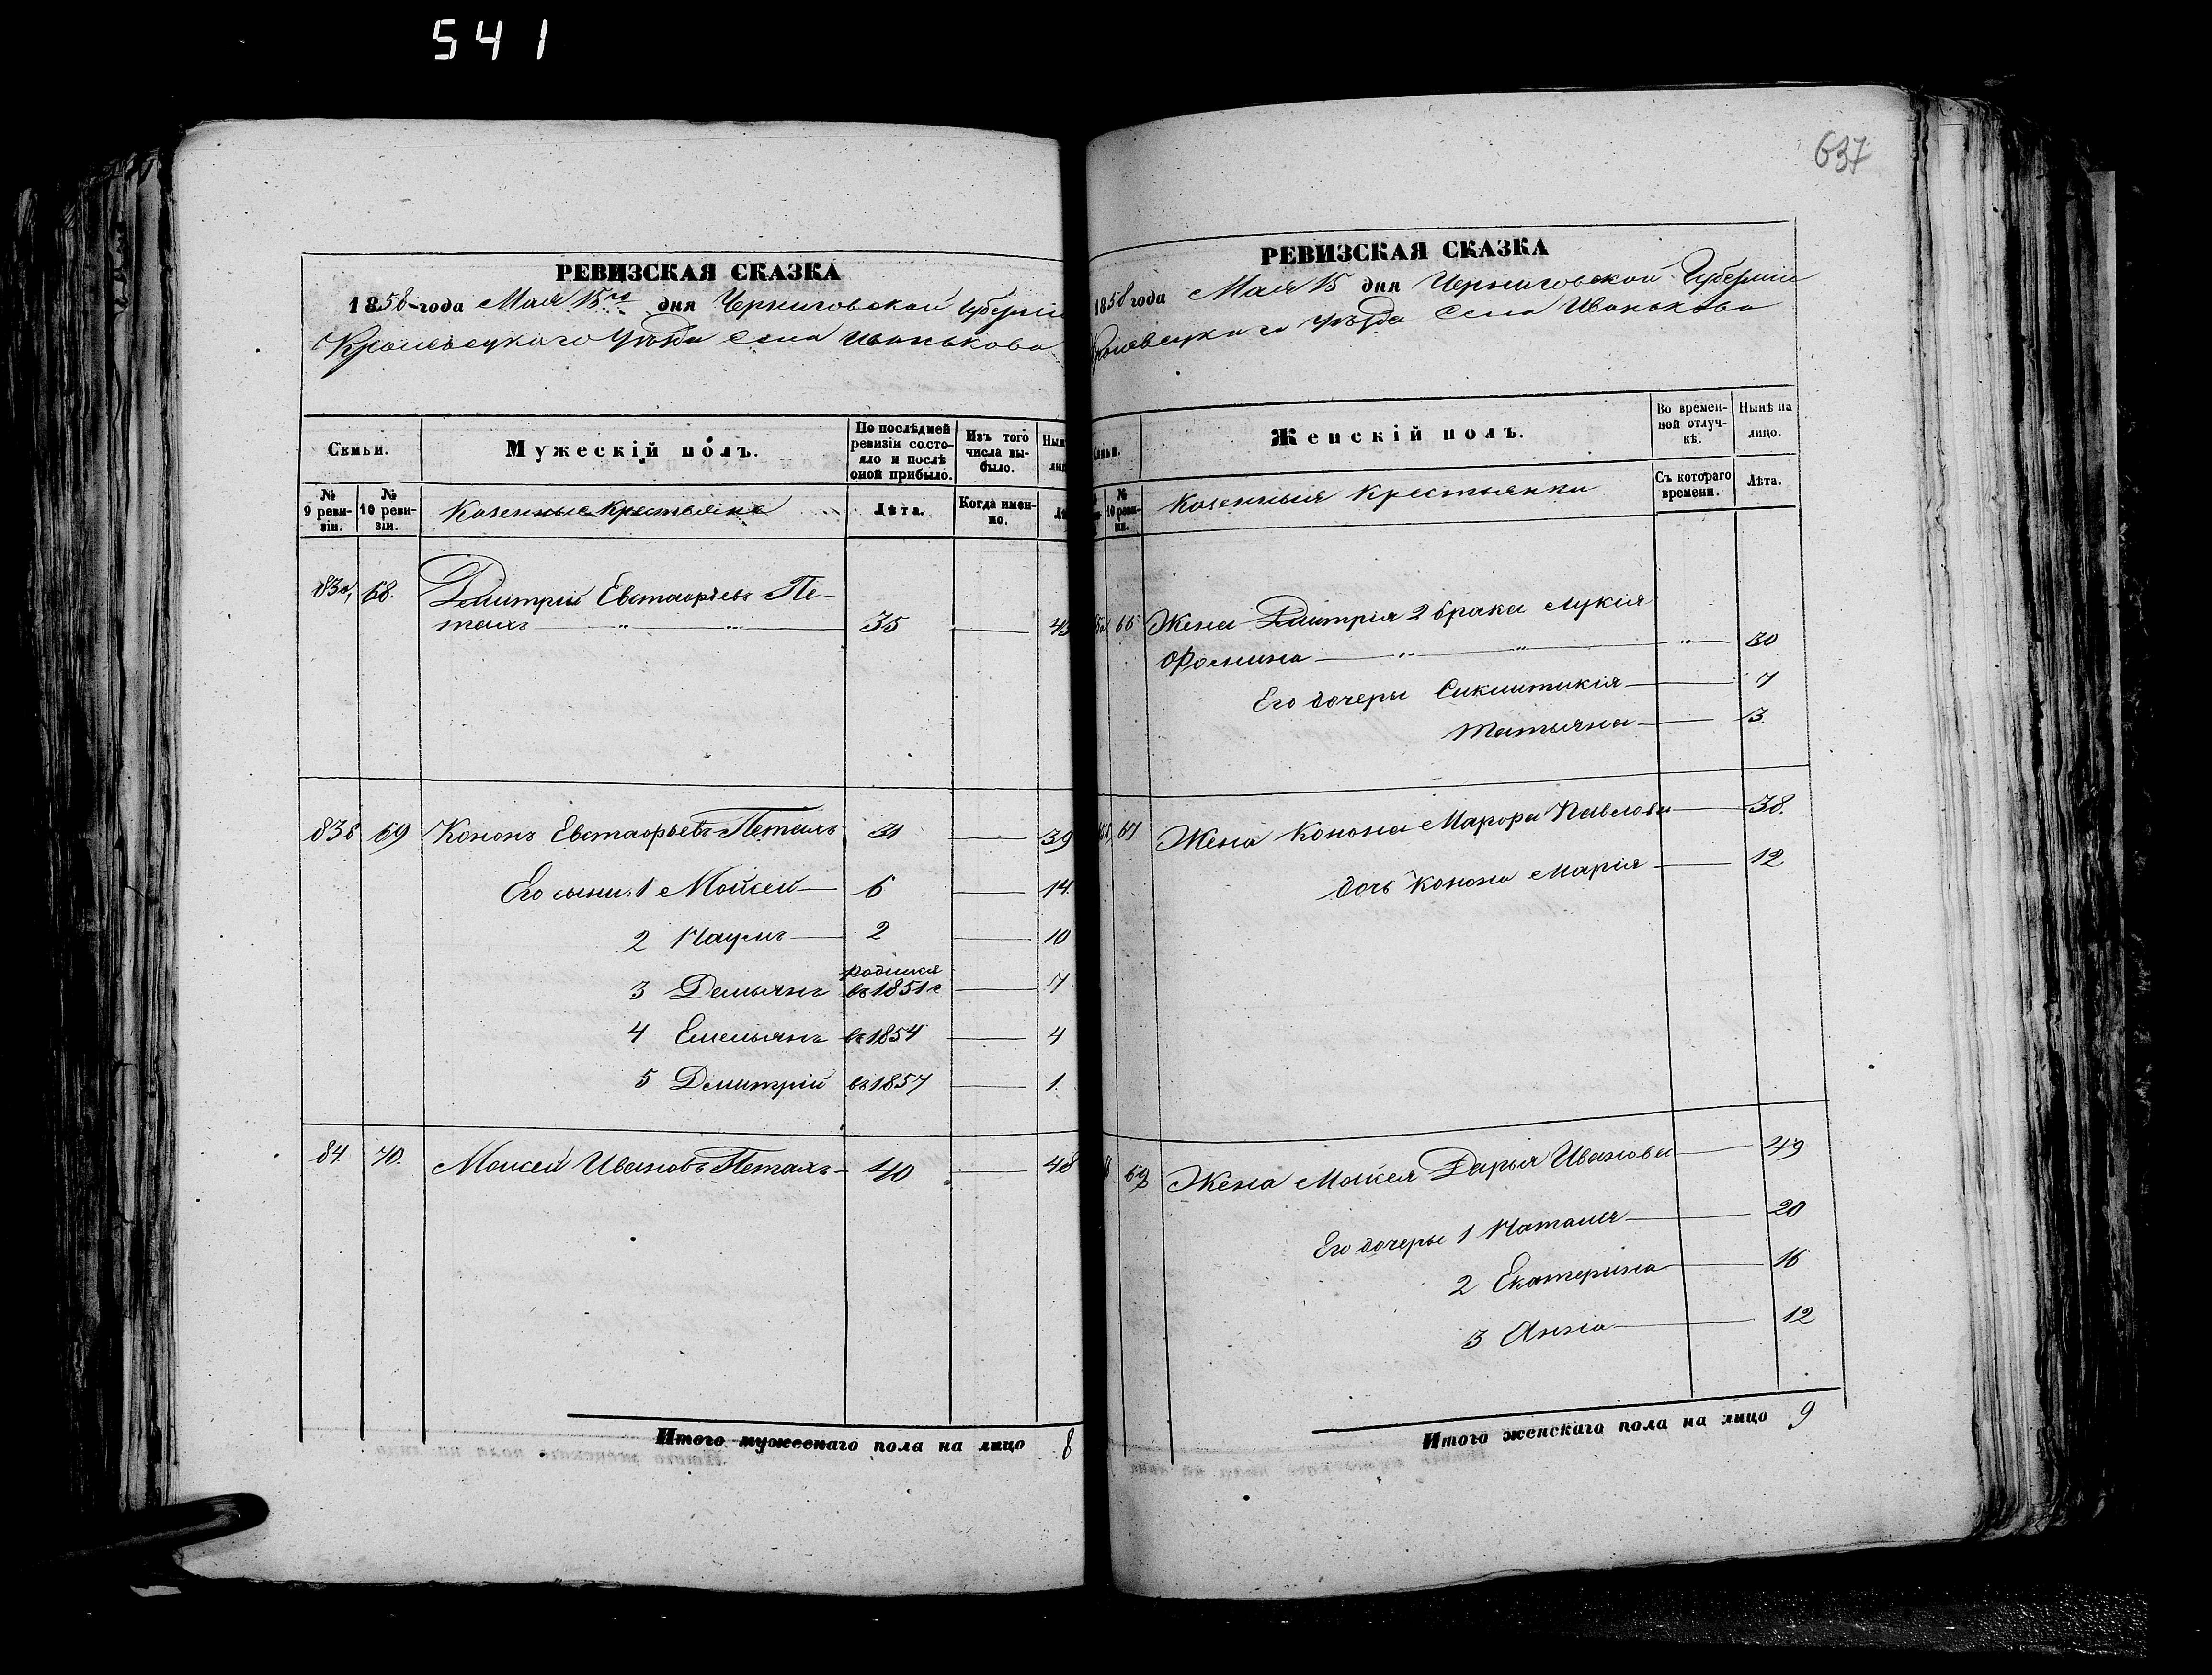 541
637
РЕВИЗСКАЯ СКАЗКА
1858 года Мая 15го дня Черниговской Губерніи
Кролевецкаго Уѣзда Села Иванькова
Семьи.
Мужескій полъ.
По послѣдней ревизіи состояло и послѣ оной прибыло.
Изъ того числа выбыло.
№ 9 ревизіи.
№ 10 ревизіи.
Казенные Крестьяне
Лѣта.
Когда именно.
83а, 68. Дмитрій Евстафьевъ Пе-
тахъ „ „ 35 43
83б 69 Кононъ Евстафьевъ Петахъ 31 39
Его сыны: 1 Мойсей 6 14
2 Наумъ 2 10
3 Демьянъ родился въ 1851 г 7
4 Емельянъ въ 1854 4
5 Дмитрій въ 1857 1
84. 70. Моисей Ивановъ Петахъ 40 48
Итого мужескаго пола на лицо 8
РЕВИЗСКАЯ СКАЗКА
1858 года Мая 15 дня Черниговской Губерніи
Кролевецкаго уѣзда Села Иванькова
Женскій полъ.
Во временной отлучкѣ.
Нынѣ на лицо.
№ 10 ревизіи.
Казенныя Крестьянки
Съ котораго времени.
Лѣта.
Жена Дмитрія 2 брака Лукія
Фомина „ „ „ 30
Его дочеры Сиклитикія 7
Татьяна 3.
67 Жена Конона Марфа Павлова 38.
дочь Конона Марія 12
Жена Моисея Дарья Иванова 49
Его дочеры 1 Наталія 20
2 Екатерина 16
3 Анна 12
Итого женскаго пола на лицо 9